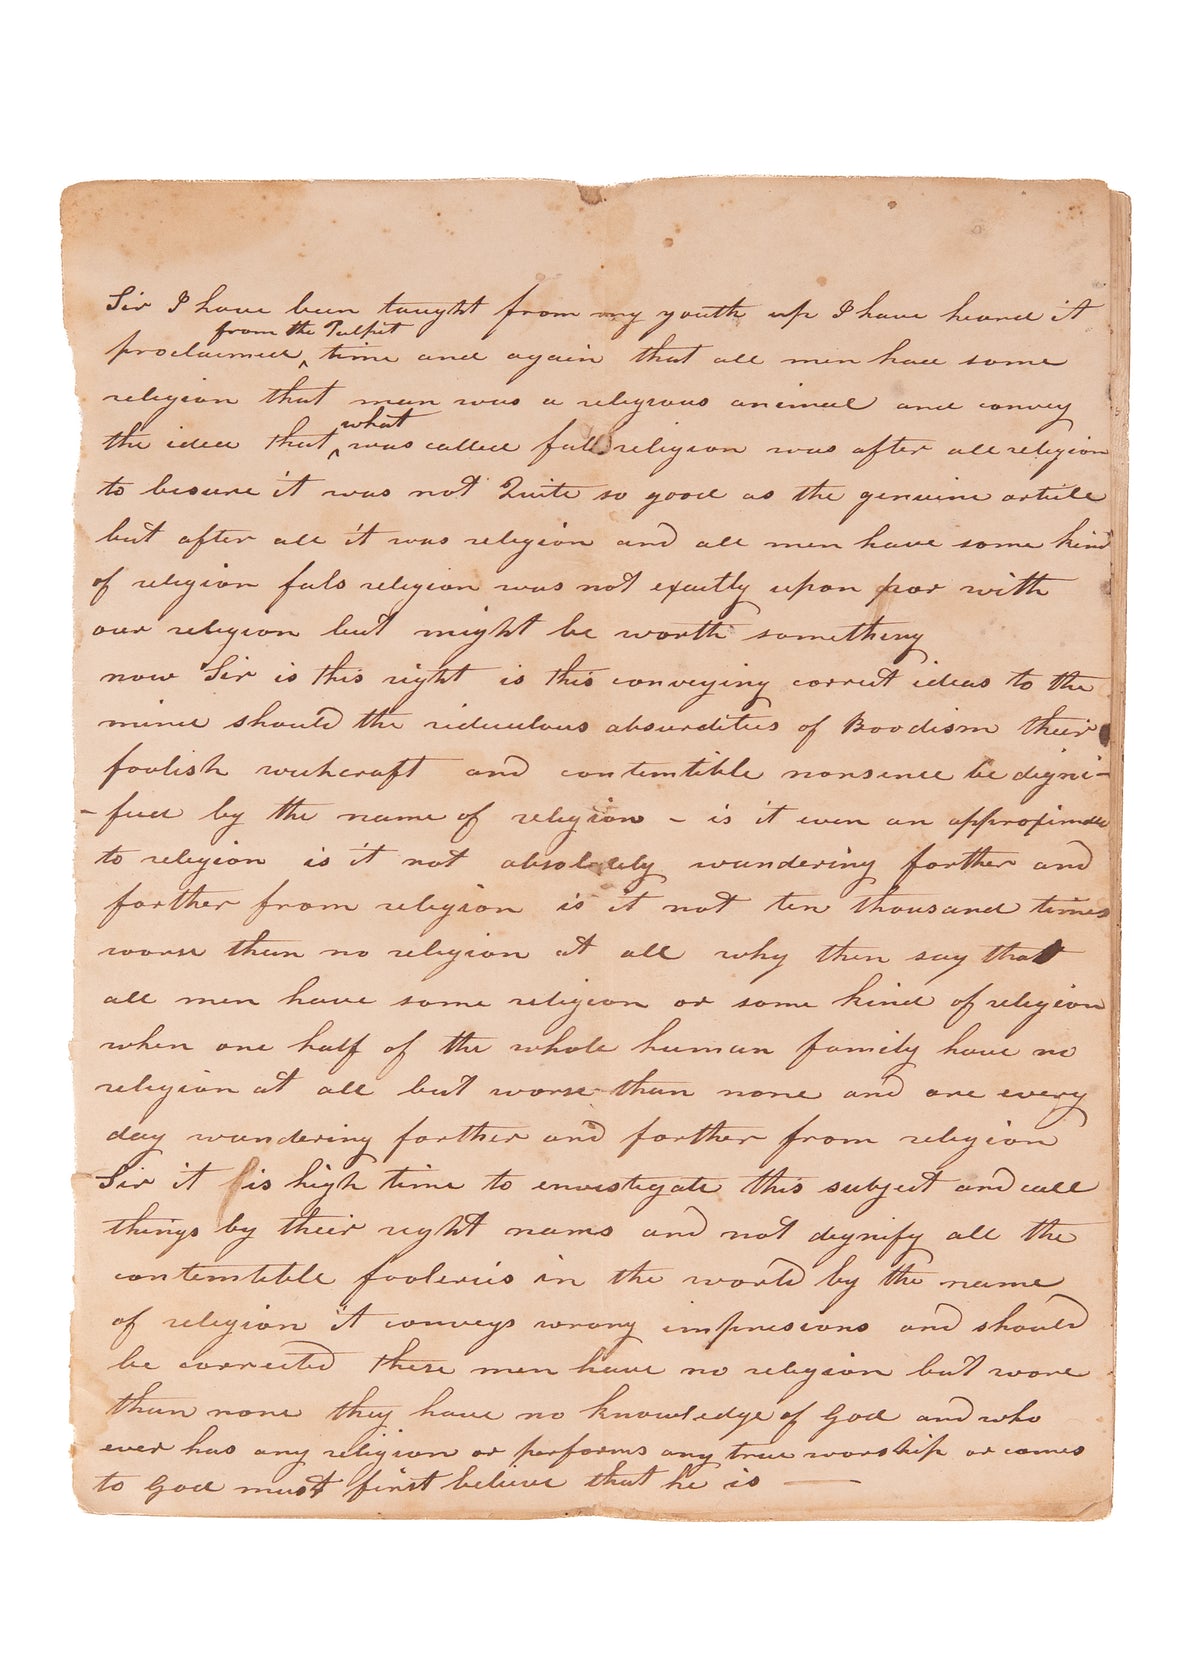 Sir I have been taught from my youth up I have heard it
from the Pulpit
proclaimed ^ time and again that all men have some
religion that man was a religious animal and convey
what
the idea that ^ was called fals religion was after all religion
to besure it was not Quite so good as the genuine article
but after all it was religion and all men have some kind
of religion fals religion was not exactly upon par with
our religion but might be worth something
now Sir is this right is this conveying correct ideas to the
mind should the ridiculous absurdities of Boodism their
foolish witchcraft and contemtible nonsence be digni-
-fied by the name of religion - is it even an approximate
to religion is it not absolutely wandering farther and
farther from religion is it not ten thousand times
worse than no religion at all why then say that
all men have some religion or some kind of religion
when one half of the whole human family have no
religion at all but worse than none and are every
day wandering farther and farther from religion
Sir it is high time to envestigate this subject and call
things by their right nams and not dignify all the
contemtible fooleries in the world by the name
of religion it conveys wrong impresions and should
be corrected these men have no religion but worse
than none they have no knowledge of God and who
ever has any religion or performs any true worship or comes
to God must first believe that he is —